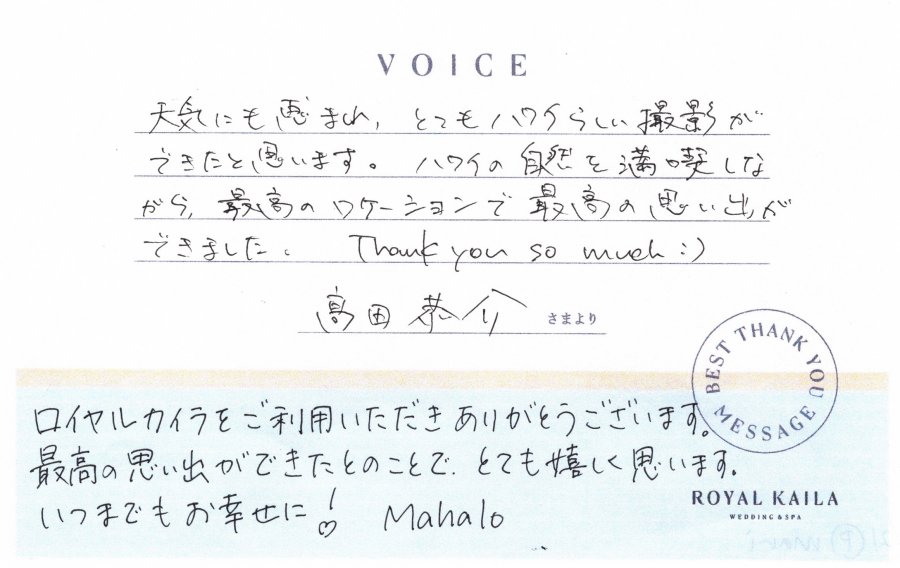 VOICE
天気にも恵まれ、とてもハワイらしい撮影が
できたと思います。 ハワイの自然を満喫しな
がら、最高のロケーションで最高の思い出が
できました。 Thank you so much :)
高田恭介 さまより
BEST THANK YOU MESSAGE
ロイヤルカイラをご利用いただきありがとうございます。
最高の思い出ができたとのことで、とても嬉しく思います。
いつまでもお幸せに! Mahalo
ROYAL KAILA
WEDDING & SPA